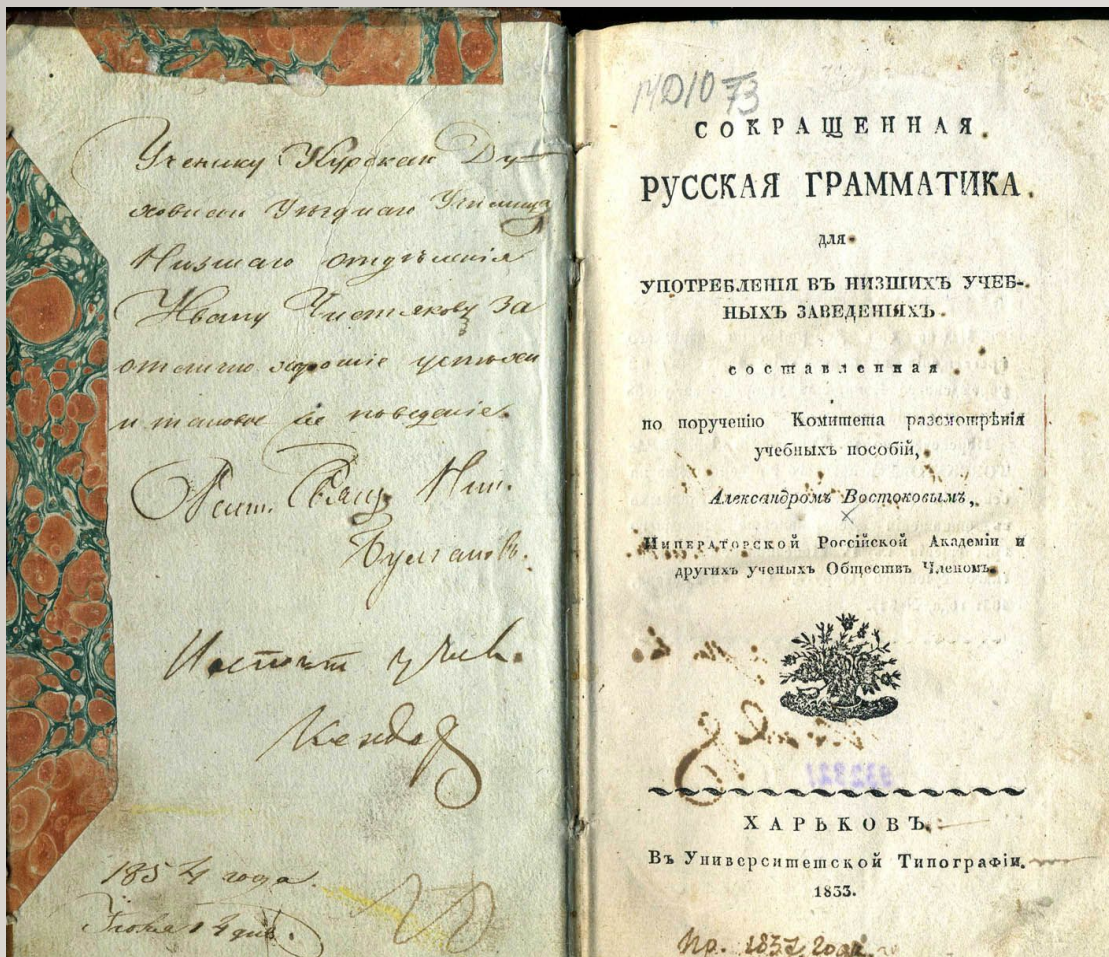 Ученику Курскаго Ду-
ховнаго Уѣзднаго Училища
Низшаго отдѣленія
Ивану Чистякову за
отлично хорошіе успѣхи
и таковое же поведеніе.
Булгаковъ.
1854 года
Іюля 14 дня.
MD10 73
СОКРАЩЕННАЯ
РУССКАЯ ГРАММАТИКА
для
УПОТРЕБЛЕНІЯ ВЪ НИЗШИХЪ УЧЕБ-
НЫХЪ ЗАВЕДЕНІЯХЪ
составленная
по порученію Комитета разсмотрѣнія
учебныхъ пособій,
Александромъ Востоковымъ,
Императорской Россійской Академіи и
другихъ ученыхъ Обществъ Членомъ.
ХАРЬКОВЪ,
Въ Университетской Типографіи.
1833.